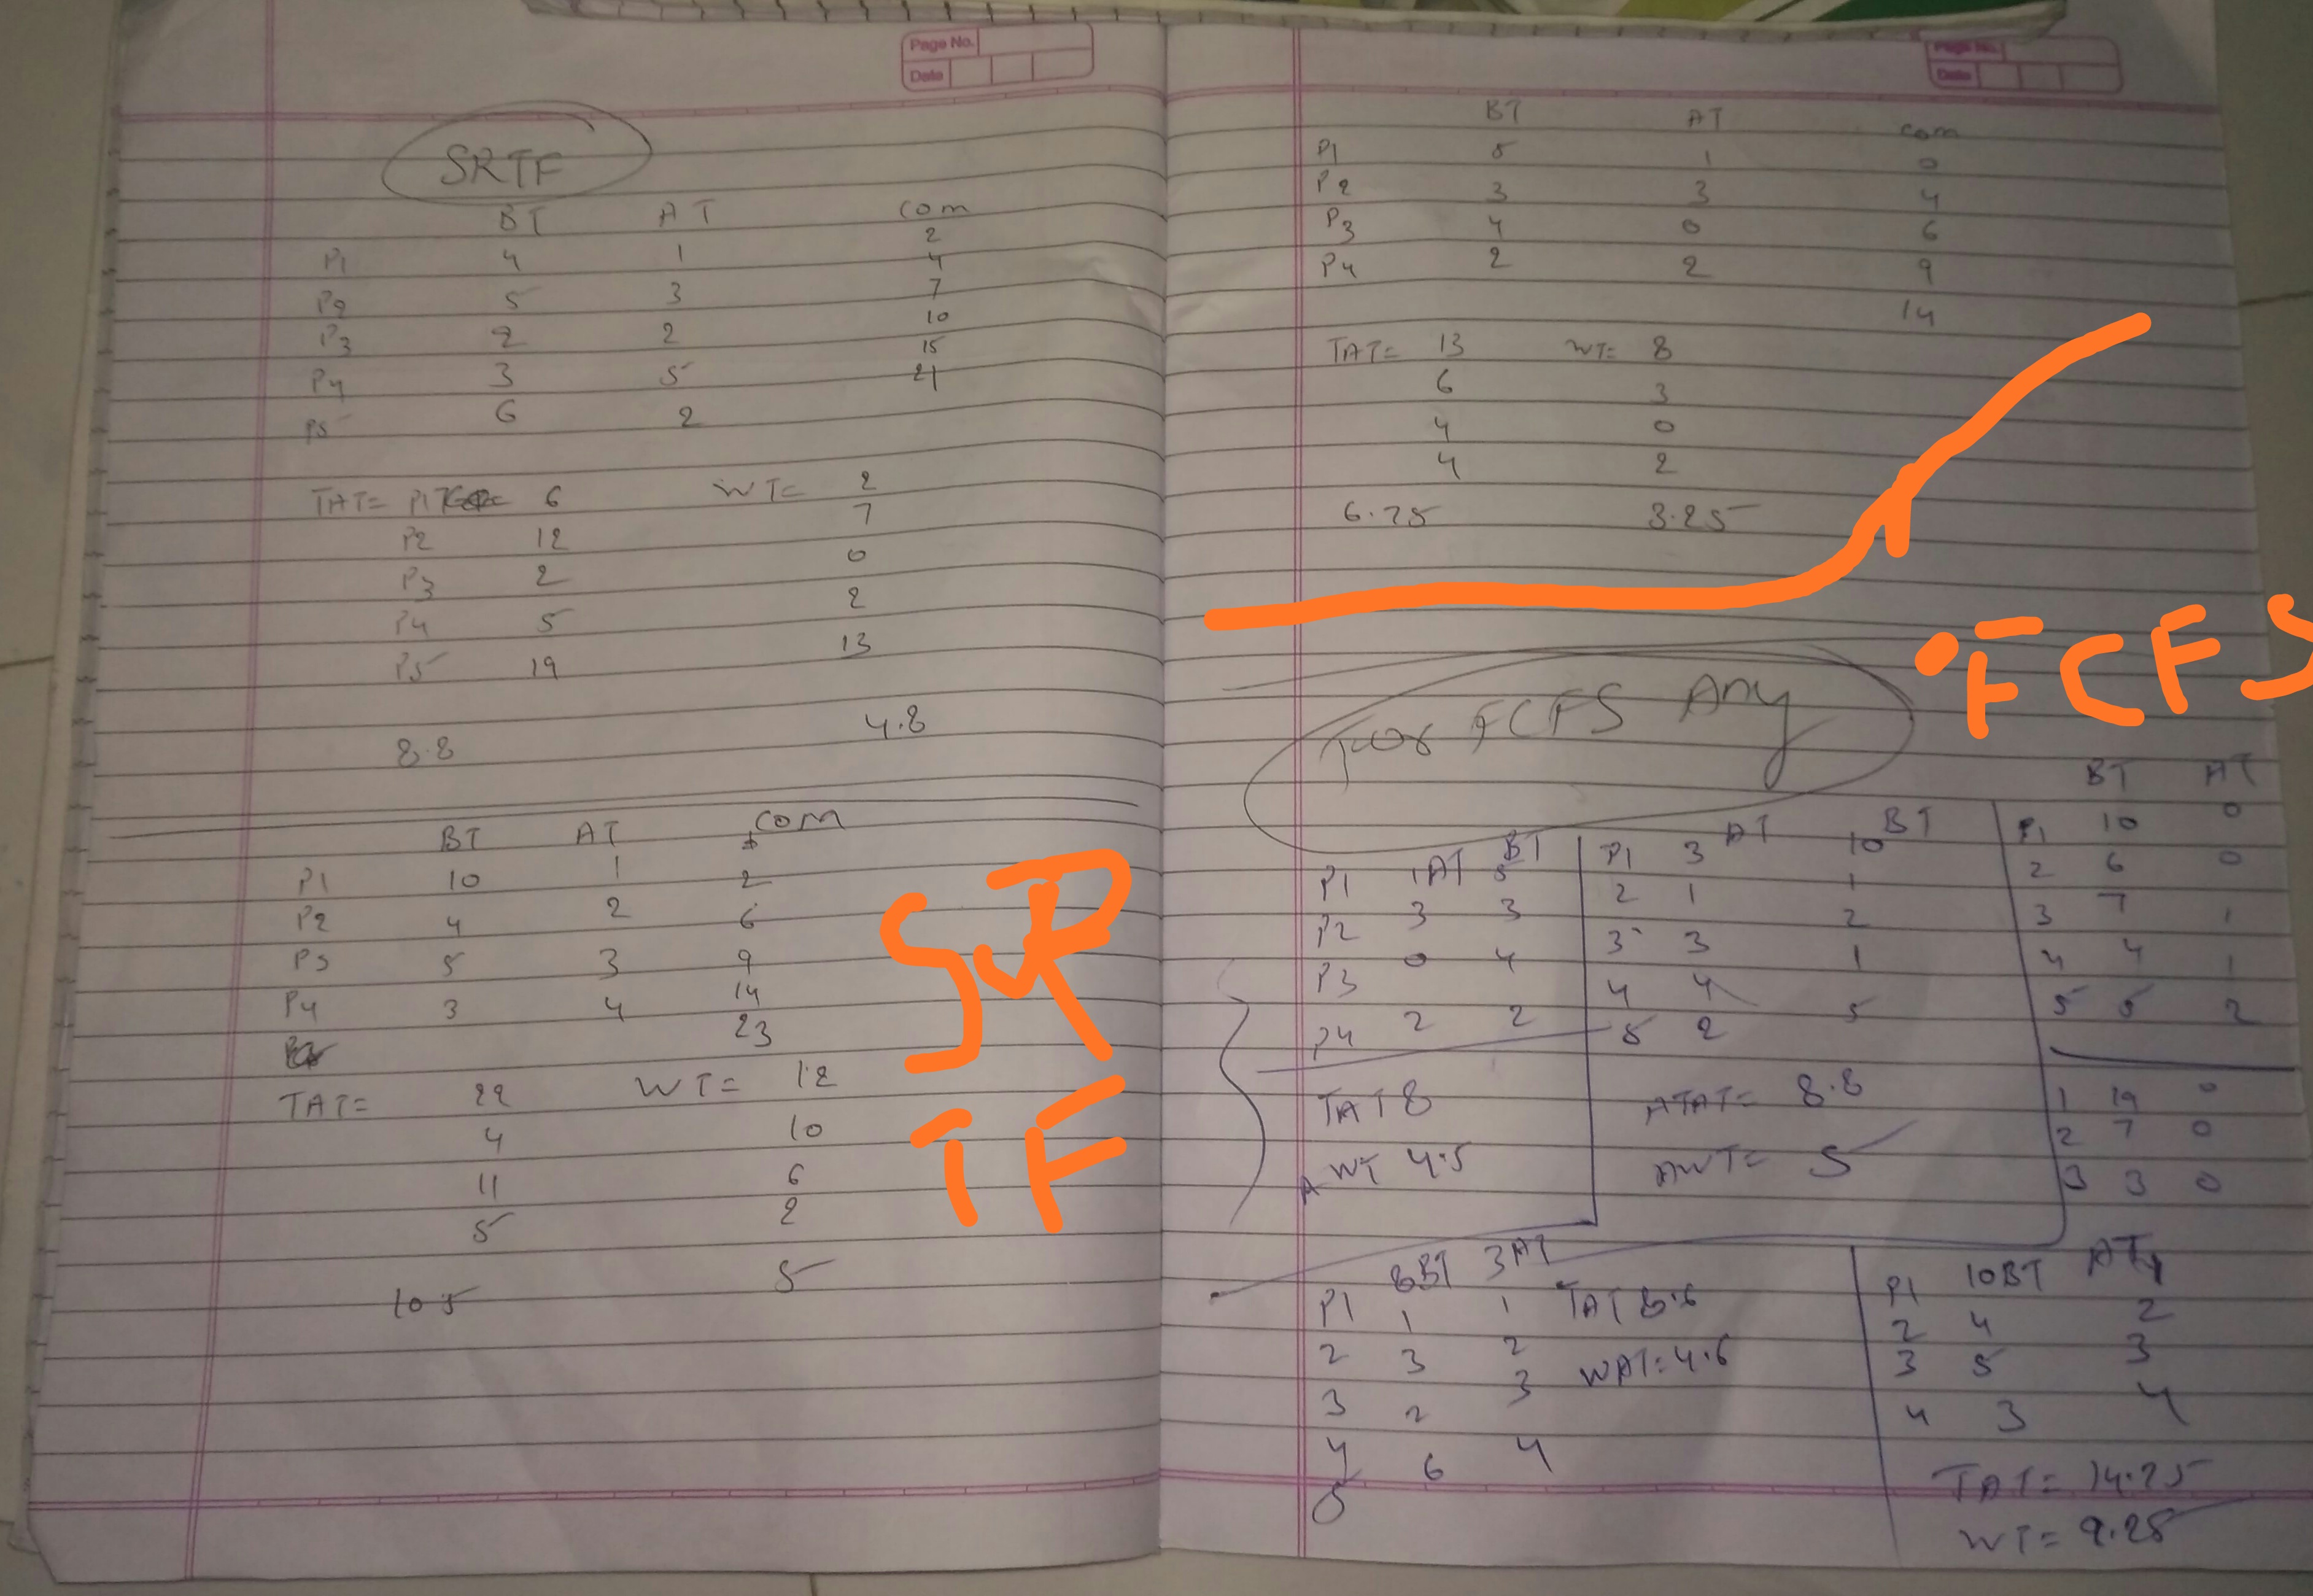 Page No.
Date
SRTF
BT AT com
2
P1 4 1 4
P2 5 3 7
P3 2 2 10
P4 3 5 15
P5 6 2 21
TAT= P1 6 WT= 2
P2 12 7
P3 2 0
P4 5 2
P5 19 13
8.8 4.8
BT AT com
P1 10 1 2
P2 4 2 6
P3 5 3 9
P4 3 4 14
23
TAT= 22 WT= 12
4 10
11 6
5 2
10.5 5
SR
TF
Page No.
Date
BT AT com
P1 5 1 0
P2 3 3 4
P3 4 0 6
P4 2 2 9
14
TAT= 13 WT= 8
6 3
4 0
4 2
6.75 3.25
FCFS
For FCFS Any
AT BT
P1 1 5
P2 3 3
P3 0 4
P4 2 2
TAT 8
AWT 4.5
AT BT
P1 3 10
2 1 1
3 3 2
4 4 1
5 2 5
ATAT= 8.8
AWT= 5
BT AT
P1 10 0
2 6 0
3 7 1
4 4 1
5 5 2
1 19 0
2 7 0
3 3 0
8BT 3AT
P1 1 1 TAT 8.6
2 3 2
3 2 3 WAT=4.6
4 6 4
5
P1 10BT AT 1
2 4 2
3 5 3
4 3 4
TAT= 14.25
WT= 9.25